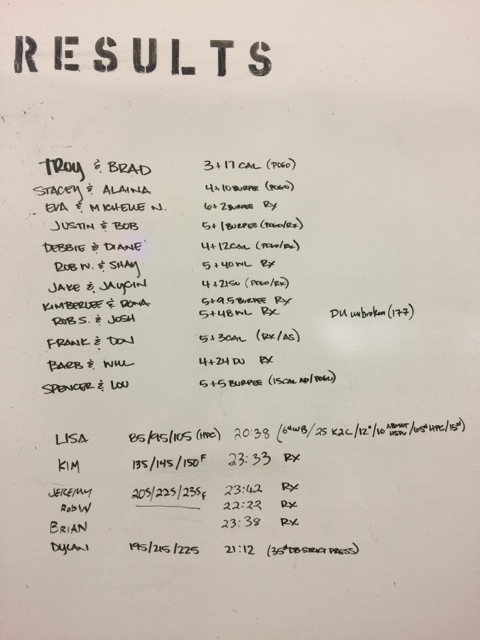 RESULTS
TROY & BRAD 3+17 CAL (POGO)
STACEY & ALAINA 4+10 BURPEE (POGO)
EVA & MICHELLE N. 6+2 BURPEE RX
JUSTIN & BOB 5+1 BURPEE (POGO/RX)
DEBBIE & DIANE 4+12 CAL (POGO/RX)
ROB N. & SHAY 5+40 WL RX
JAKE & JAYCIN 4+21 SU (POGO/RX)
KIMBERLEE & RONA 5+9.5 BURPEE RX
ROB S. & JOSH 5+48 WL RX DU unbroken (177)
FRANK & DON 5+3 CAL (RX/AS)
BARB & WILL 4+24 DU RX
SPENCER & LOU 5+5 BURPEE (15 CAL AD/POGO)
LISA 85/95/105 (HPC) 20:38 (6# WB/25 K2C/12"/10 ABMAT HSPU/65# HPC/15#)
KIM 135/145/150F 23:33 RX
JEREMY 205/225/235F 23:42 RX
ROB W 22:22 RX
BRIAN 23:38 RX
DYLAN 195/215/225 21:12 (35# DB STRICT PRESS)